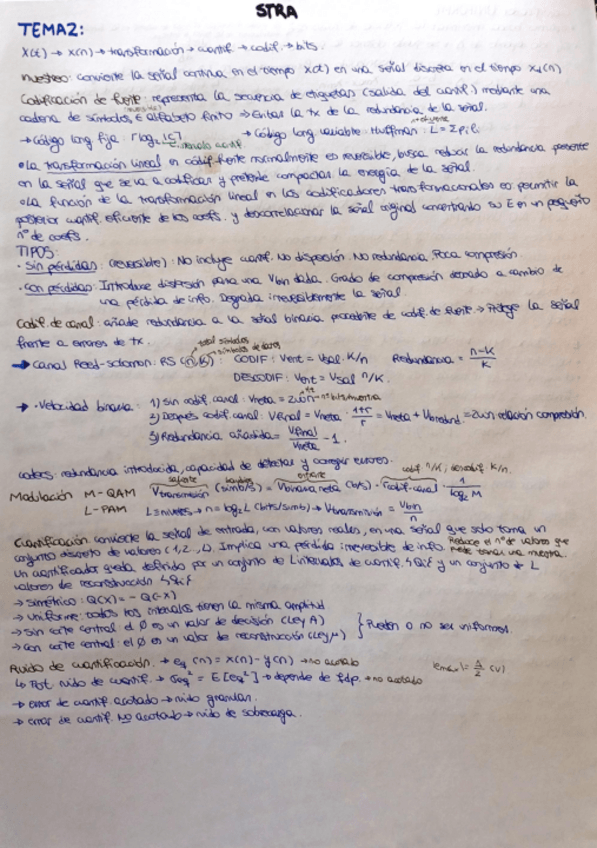 STRA
TEMA2:
x(t) → x(n) → transformación → cuantif. → codif. → bits.
muestreo: convierte la señal continua en el tiempo x(t) en una señal discreta en el tiempo x(n)
Codificación de fuente: representa la secuencia de etiquetas (salida del cuantif.) mediante una
cadena de símbolos ∈ alfabeto finito → Evitar la tx de la redundancia de la señal.
→ código long fija: ⌈log₂ |S|⌉ → Código long variable: Huffman: L = Σ pᵢ lᵢ
• La transformación lineal en codif. fuente normalmente es reversible, busca reducir la redundancia presente
en la señal que se va a codificar y pretende compactar la energía de la señal.
• La función de la transformación lineal en los codificadores transformacionales es: permitir la
posterior cuantif. eficiente de los coefs. y descorrelacionar la señal original concentrando su E en un pequeño
nº de coefs.
TIPOS:
· Sin pérdidas: (reversible): No incluye cuantif. No distorsión. No redundancia. Poca compresión.
· Con pérdidas: Introduce distorsión para una Vbin dada. Grado de compresión elevado a cambio de
una pérdida de info. Degrada irreversiblemente la señal.
Codif. de canal: añade redundancia a la señal binaria procedente de codif. de fuente → Protege la señal
frente a errores de tx.
total símbolos
símbolos de datos
→ Canal Reed-Solomon: RS (n,k): CODIF: Vent = Vsal · k/n Redundancia = n-k / k
DESCODIF: Vent = Vsal n/k.
→ · Velocidad binaria: 1) Sin codif. canal: Vneta =
2) Después codif. canal: Vfinal = Vneta · 1+r / r = Vneta + Vbredund. = relación compresión.
3) Redundancia añadida = Vfinal / Vneta - 1.
redundancia introducida, capacidad de detectar y corregir errores.
codif n/k, decodif k/n.
Modulación M-QAM Vtransmisión (simb/s) = Vbinaria neta (b/s) · codif-canal · 1 / log₂ M
L-PAM L = niveles → n = log₂ L (bits/simb) → Vtransmisión = Vbin / n
Cuantificación: convierte la señal de entrada, con valores reales, en una señal que solo toma un
conjunto discreto de valores (1, 2, .., L). Implica una pérdida irreversible de info. Reduce el nº de valores que
puede tomar una muestra.
Un cuantificador queda definido por un conjunto de L intervalos de cuantif. y un conjunto de L
valores de reconstrucción
→ simétrico: Q(x) = - Q(-x)
→ Uniforme: todos los intervalos tienen la misma amplitud
→ Sin corte central: el 0 es un valor de decisión (Ley A)
→ con corte central: el 0 es un valor de reconstrucción (Ley μ) } Pueden o no ser uniformes.
Ruido de cuantificación. → eq (n) = x(n) - y(n) → no acotado |emax| = Δ / 2 (V)
↳ Pot ruido de cuantif. → σeq² = E [eq²] → depende de fdp. → no acotado
→ error de cuantif. acotado → ruido granular.
→ error de cuantif. NO acotado → ruido de sobrecarga.